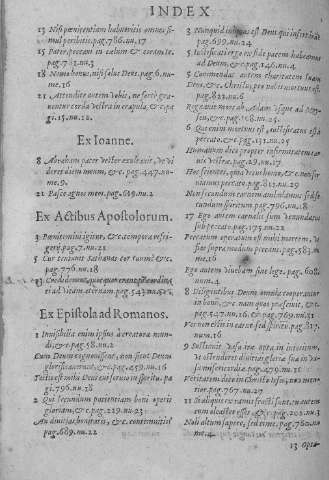 INDEX
13 Nisi pœnitentiam habueritis omnes si-
mul peribitis. pag. 786. nu. 17
15 Pater peccaui in cælum & coram te.
pag. nu. 3
18 Nemo bonus, nisi solus Deus. pag. 6. nu-
me. 16
21 Attendite autem vobis, ne fortè gra-
uentur corda vestra in crapula, & c. pa
gi. 15. nu. 12.
Ex Ioanne.
8 Abraham pater vester exultauit, ut vi
deret diem meum, & c. pag. 447. nu-
me. 9.
21 Pasce agnos meos. pag. 619. nu. 2
Ex Actibus Apostolorum.
3 Pœnitemini igitur, & c. tempora refri-
gerij. pag. 7. nu. 21
5 Cur tentauit Satanas cor tuum? & c.
pag. 776. nu. 18
13 Crediderunt, quotquot erant præordinati
ad vitam æternam. pag. 543. nu.
Ex Epistola ad Romanos.
1 Inuisibilia enim ipsius à creatura mun-
di, & c. pag. 58. nu. 2
Cum Deum cognouissent, non sicut Deum
glorificauerunt, & c. pag. 459. nu. 16
Testis est mihi Deus cui seruio in spiritu. pa
gi. 796. nu. 18
2 Qui secundum patientiam boni operis
gloriam, & c. pag. 219. nu. 23
An diuitias bonitatis, & c. contemnitis?
pag. 689. nu. 22
3 Nunquid iniquus est Deus qui infert iram?
pag. 699. nu. 24
5 Iustificati ergo ex fide pacem habeamus
ad Deum, & c. pag. 146. nu. 4
5 Commendat autem charitatem suam
Deus, & c. Christus pro nobis mortuus est.
pag. 822. nu. 6
Regnauit mors ab Adam vsque ad Moy-
sen, & c. pag. 168. nu. 25.
6 Qui enim mortuus est, iustificatus est à
peccato. & c. pag. 131. nu. 25
Humanum dico propter infirmitatem car-
nis vestræ. pag. 29. nu. 17
Hoc scientes, quia vetus homo, & c. non ser
uiamus peccato. pag. 831. nu. 29
Non secundum carnem ambulantes, sed se-
cundum spiritum. pag. 796. nu. 18
17 Ego autem carnalis sum venundatus
sub peccato. pag. 175. nu. 22
Peccatum operatum est mihi mortem, vt
fiat supra modum peccans. pag. 583. nu-
me. 16
Ego autem viuebam sine lege. pag. 608.
num. 4
8 Diligentibus Deum omnia cooperantur
in bonũ, & c. nam quos præsciuit, & c.
pag. 547. nu. 16. & pag. 769. nu. 31
Vos non estis in carne sed in spiritu. pag. 817.
num. 16
9 Sustinuit vasa iræ apta in interitum,
vt ostenderet diuitias gloriæ suæ in va-
sa misericordiæ. pag. 459. nu.
Veritatem dico in Christo Iesu, non men-
tior. pag. 767. nu. 27
11 Si aliqui ex ramis fracti sunt, tu autem
cum oleaster esses & c. pag. 202. nu. 3
Noli altum sapere, sed time. pag. 780. nu-
me. 4
13 Opor-